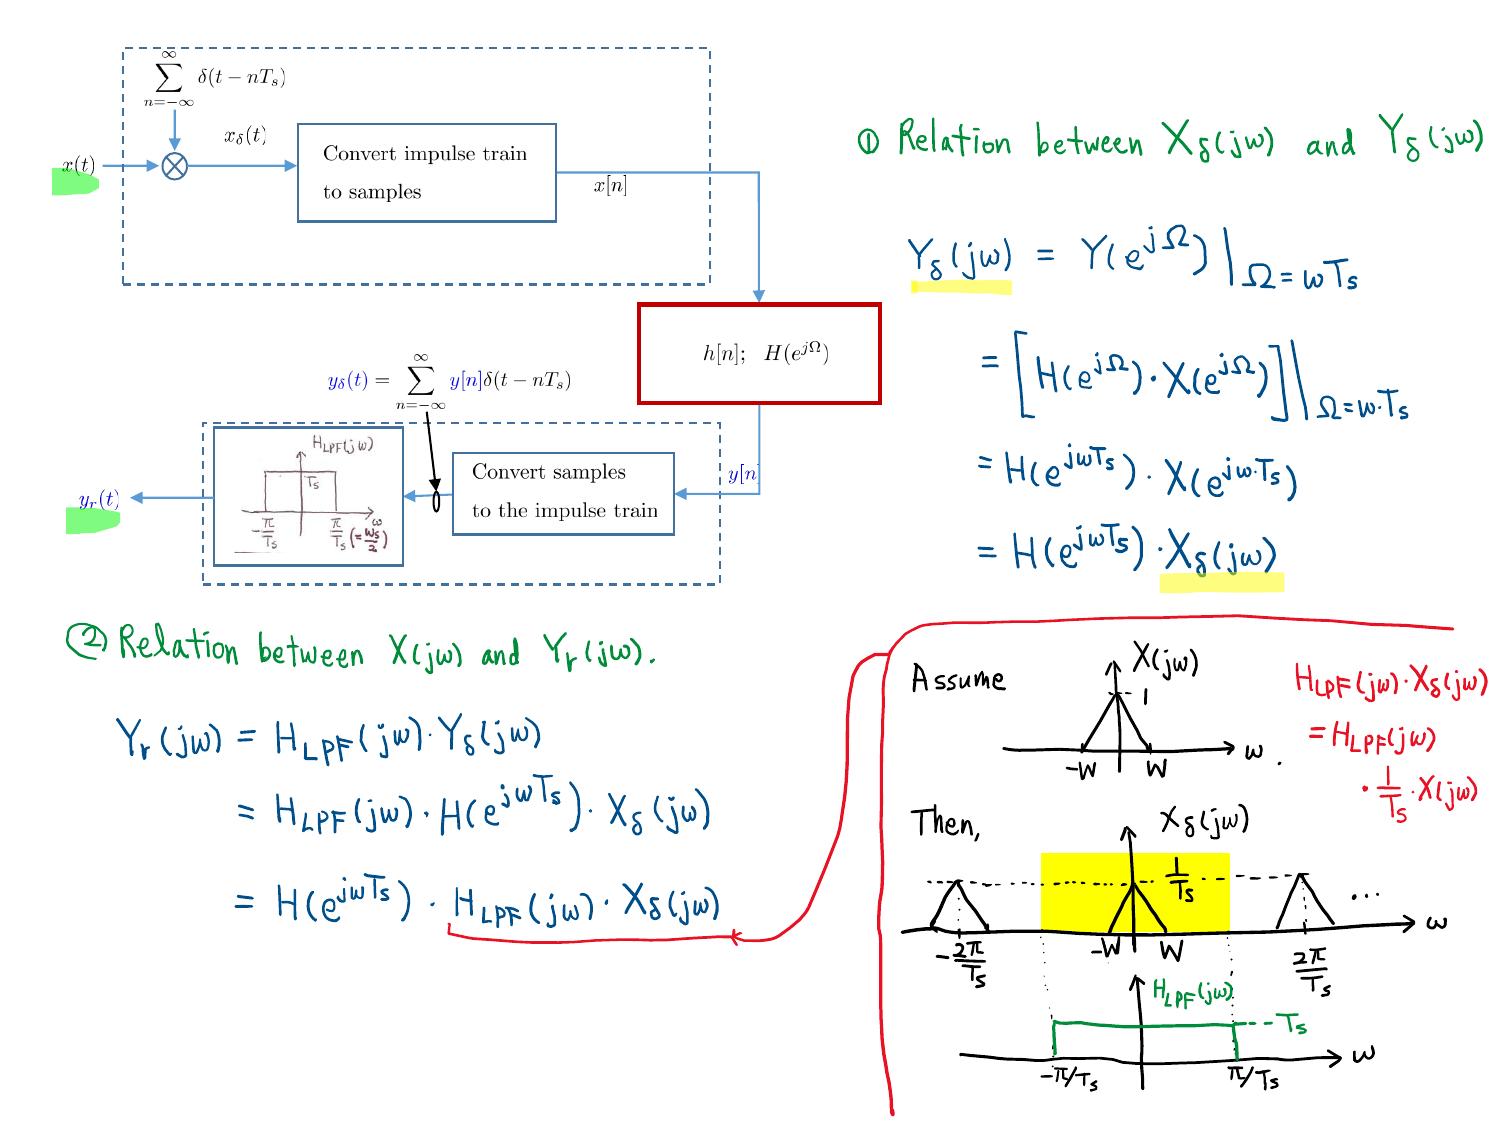 ∞
∑ δ(t − nTₛ)
n=−∞
x(t)
x_δ(t)
Convert impulse train
to samples
x[n]
h[n]; H(e^{jΩ})
∞
y_δ(t) = ∑ y[n]δ(t − nTₛ)
n=−∞
H_{LPF}(jω)
Tₛ
ω
−π/Tₛ
π/Tₛ (=ωₛ/2)
Convert samples
to the impulse train
y[n]
y_r(t)
① Relation between X_δ(jω) and Y_δ(jω)
Y_δ(jω) = Y(e^{jΩ})|_{Ω=ωTₛ}
= [H(e^{jΩ})·X(e^{jΩ})]|_{Ω=ω·Tₛ}
= H(e^{jωTₛ}) · X(e^{jω·Tₛ})
= H(e^{jωTₛ}) · X_δ(jω)
② Relation between X(jω) and Y_r(jω).
Y_r(jω) = H_{LPF}(jω)·Y_δ(jω)
= H_{LPF}(jω)·H(e^{jωTₛ})·X_δ(jω)
= H(e^{jωTₛ}) · H_{LPF}(jω)·X_δ(jω)
Assume
X(jω)
1
−W
W
ω.
H_{LPF}(jω)·X_δ(jω)
= H_{LPF}(jω)
· 1/Tₛ · X(jω)
Then,
X_δ(jω)
1/Tₛ
...
ω
−2π/Tₛ
−W
W
2π/Tₛ
H_{LPF}(jω)
Tₛ
ω
−π/Tₛ
π/Tₛ